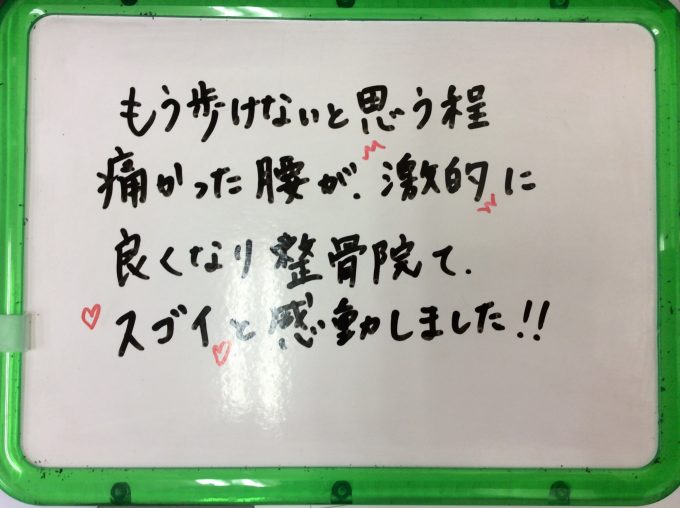 もう歩けないと思う程
痛かった腰が、激的に
良くなり整骨院て、
スゴイと感動しました!!